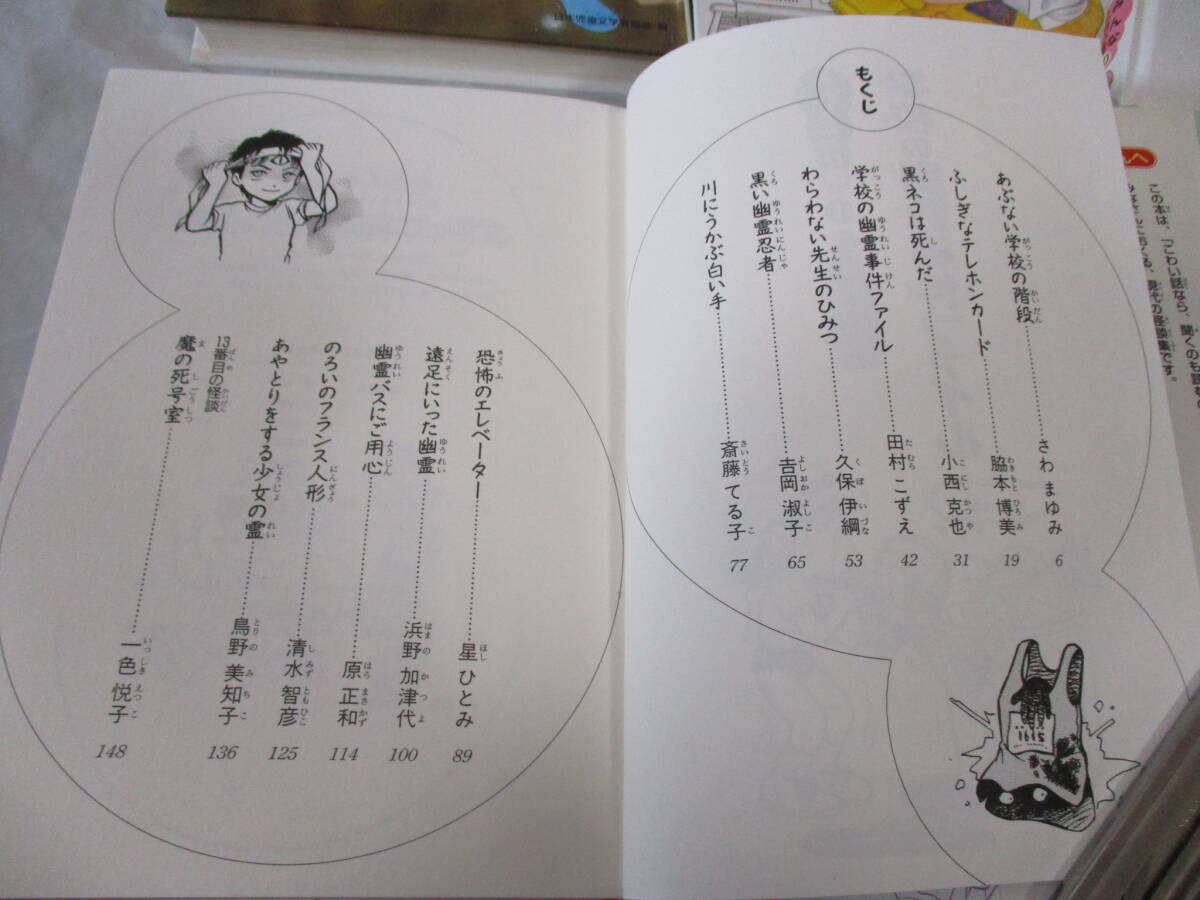 もくじ
あぶない学校の階段……さわ まゆみ 6
ふしぎなテレホンカード……脇本 博美 19
黒ネコは死んだ……小西 克也 31
学校の幽霊事件ファイル……田村 こずえ 42
わらわない先生のひみつ……久保 伊綱 53
黒い幽霊忍者……吉岡 淑子 65
川にうかぶ白い手……斎藤 てる子 77
恐怖のエレベーター……星 ひとみ 89
遠足にいった幽霊……浜野 加津代 100
幽霊バスにご用心……原 正和 114
のろいのフランス人形……清水 智彦 125
あやとりをする少女の霊……鳥野 美知子 136
13番目の怪談
魔の死号室……一色 悦子 148
この本は、「こわい話なら、聞くのも
現代の怪談集です。